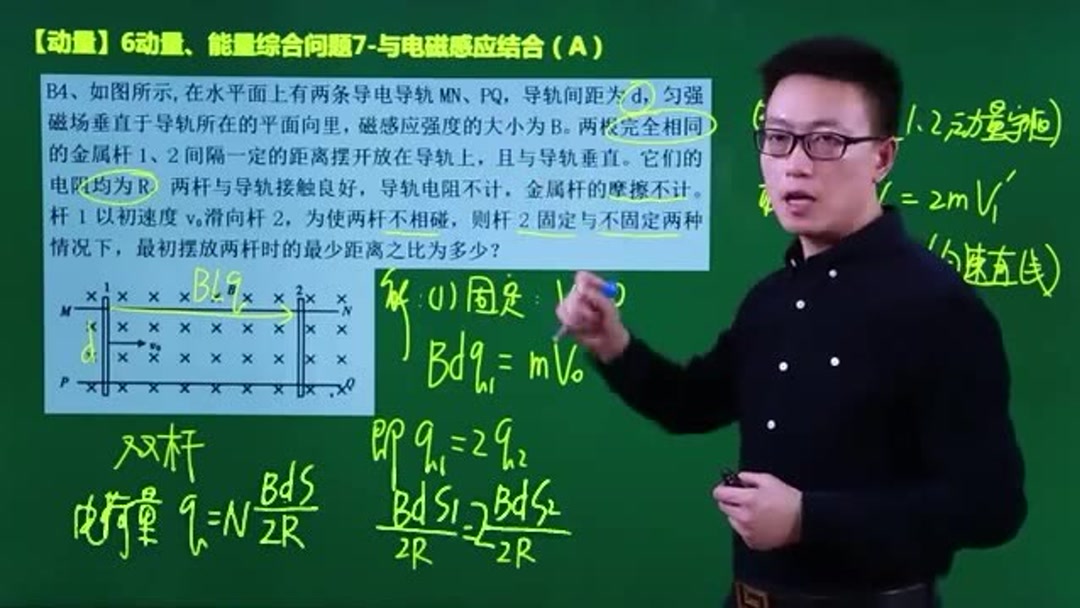 【动量】6动量、能量综合问题7-与电磁感应结合（A）
B4、如图所示,在水平面上有两条导电导轨 MN、PQ，导轨间距为 d，匀强
磁场垂直于导轨所在的平面向里，磁感应强度的大小为 B。两根完全相同
的金属杆 1、2 间隔一定的距离摆开放在导轨上，且与导轨垂直。它们的
电阻均为 R 两杆与导轨接触良好，导轨电阻不计，金属杆的摩擦不计。
杆 1 以初速度 v₀滑向杆 2，为使两杆不相碰，则杆 2 固定与不固定两种
情况下，最初摆放两杆时的最少距离之比为多少？
1 Blq B 2
M N
d v₀
P Q
双杆
电荷量 q=N BdS/2R
解:(1)固定:
Bdq₁=mV₀
即 q₁=2q₂
BdS₁/2R=2BdS₂/2R
1.2动量守恒)
=2mV₁′
匀速直线)